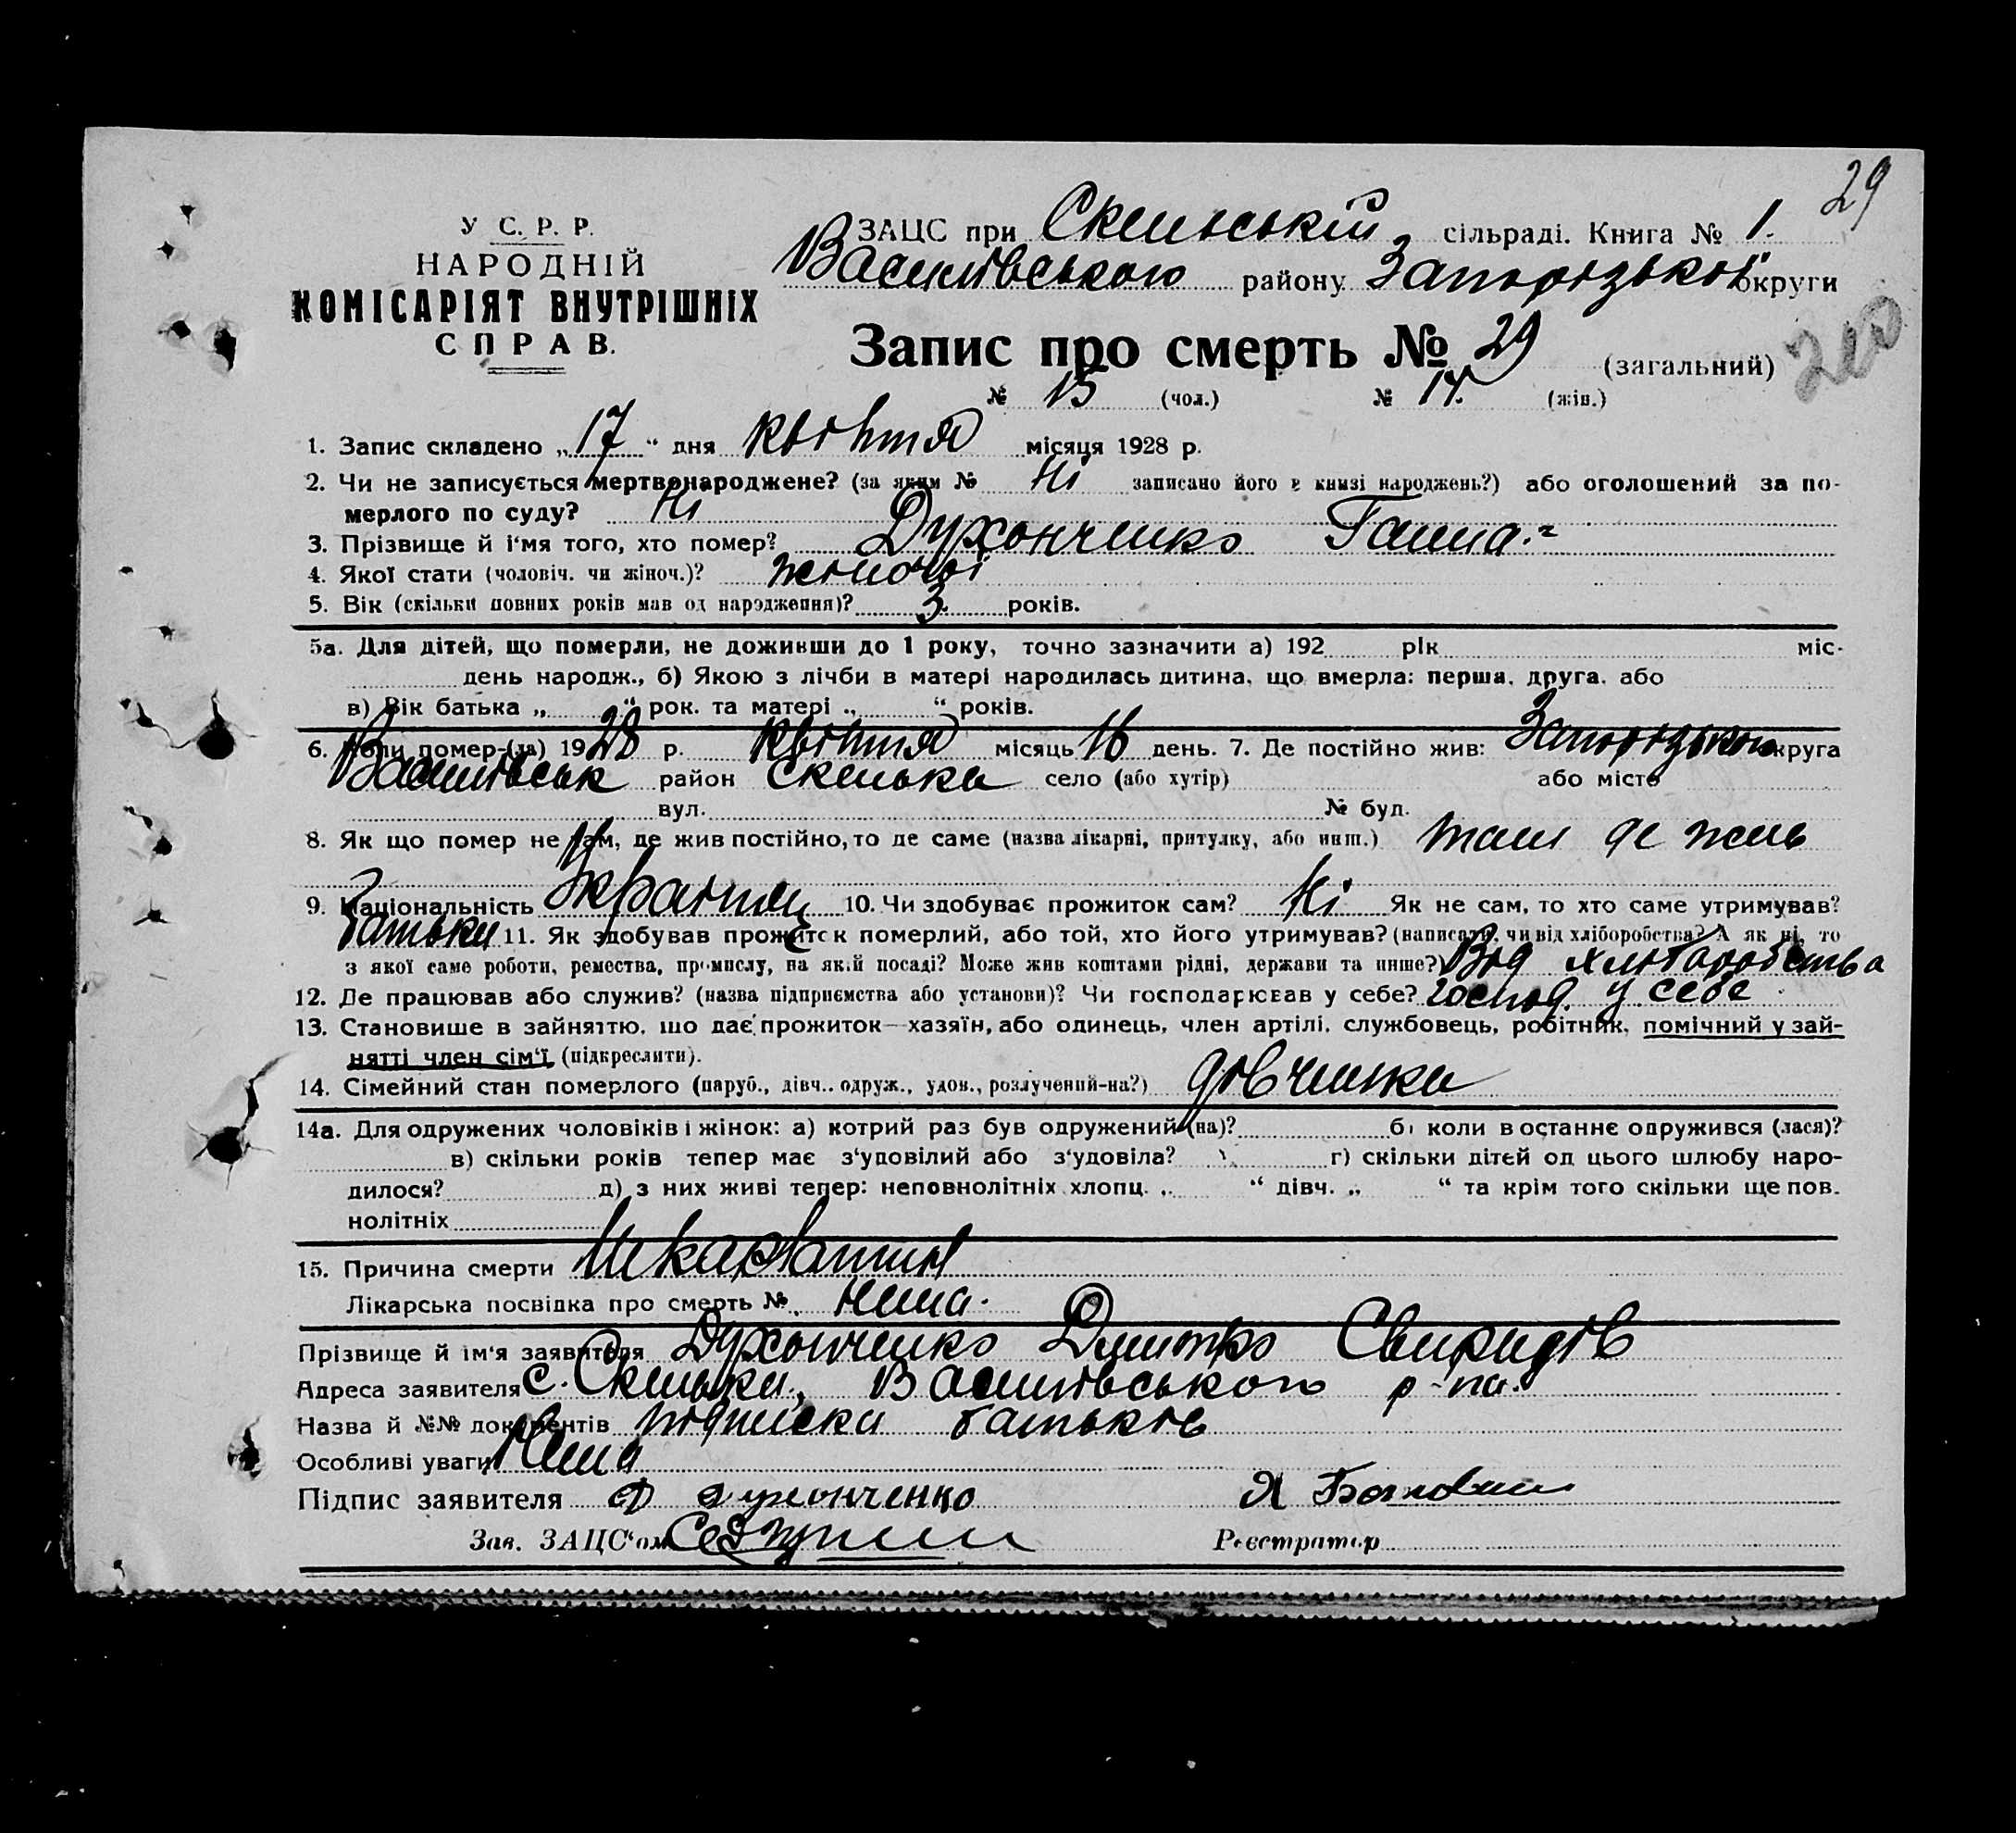 29
У С. Р. Р.
НАРОДНІЙ
КОМІСАРІЯТ ВНУТРІШНІХ
СПРАВ.
ЗАЦС при Скельській сільраді. Книга № 1.
Василівського району Запорізької округи
Запис про смерть № 29 (загальний)
№ 15 (чол.) № 14. (жін.)
1. Запис складено „17“ дня квітня місяця 1928 р.
2. Чи не записується мертвонароджене? (за яким № Ні записано його в книзі народжень?) або оголошений за по-
мерлого по суду? Ні
3. Прізвище й і'мя того, хто помер? Духонченко Ганна
4. Якої стати (чоловіч. чи жіноч.)? жіночої
5. Вік (скільки повних років мав од народження)? 3 років.
5а. Для дітей, що померли, не доживши до 1 року, точно зазначити а) 192 рік міс.
день народж., б) Якою з лічби в матері народилась дитина, що вмерла: перша, друга, або
в) Вік батька „ “ рок. та матері „ “ років.
6. Коли помер-(ла) 1928 р. квітня місяць 16 день. 7. Де постійно жив: Запорізької округа
Василівськ район Скелька село (або хутір) або місто
вул. № буд.
8. Як що помер не там, де жив постійно, то де саме (назва лікарні, притулку, або инш.) там де жив
9. Національність Українец 10. Чи здобуває прожиток сам? Ні Як не сам, то хто саме утримував?
батьки 11. Як здобував прожиток померлий, або той, хто його утримував? (написати, чи від хліборобства? А як ні, то
з якої саме роботи, ремества, промислу, на якій посаді? Може жив коштами рідні, держави та инше?) Від хліборобства
12. Де працював або служив? (назва підприємства або установи)? Чи господарював у себе? господ. у себе
13. Становище в зайняттю, що дає прожиток—хазяїн, або одинець, член артілі, службовець, робітник, помічний у зай-
нятті член сім'ї (підкреслити).
14. Сімейний стан померлого (паруб., дівч., одруж., удов., розлучений-на?) дівчинка
14а. Для одружених чоловіків і жінок: а) котрий раз був одружений (на)? б) коли в останнє одружився (лася)?
в) скільки років тепер має з'удовілий або з'удовіла? г) скільки дітей од цього шлюбу наро-
дилося? д) з них живі тепер: неповнолітніх хлопц. „ “ дівч. „ “ та крім того скільки ще пов.
нолітніх
15. Причина смерти Шкарлатин
Лікарська посвідка про смерть № Нема.
Прізвище й ім'я заявителя Духонченко Дмитро Свиридів
Адреса заявителя с. Скельки, Василівського р-на.
Назва й №№ документів підписка батьків
Особливі уваги Нема
Підпис заявителя Д Духонченко
Зав. ЗАЦС'ом Реєстратор